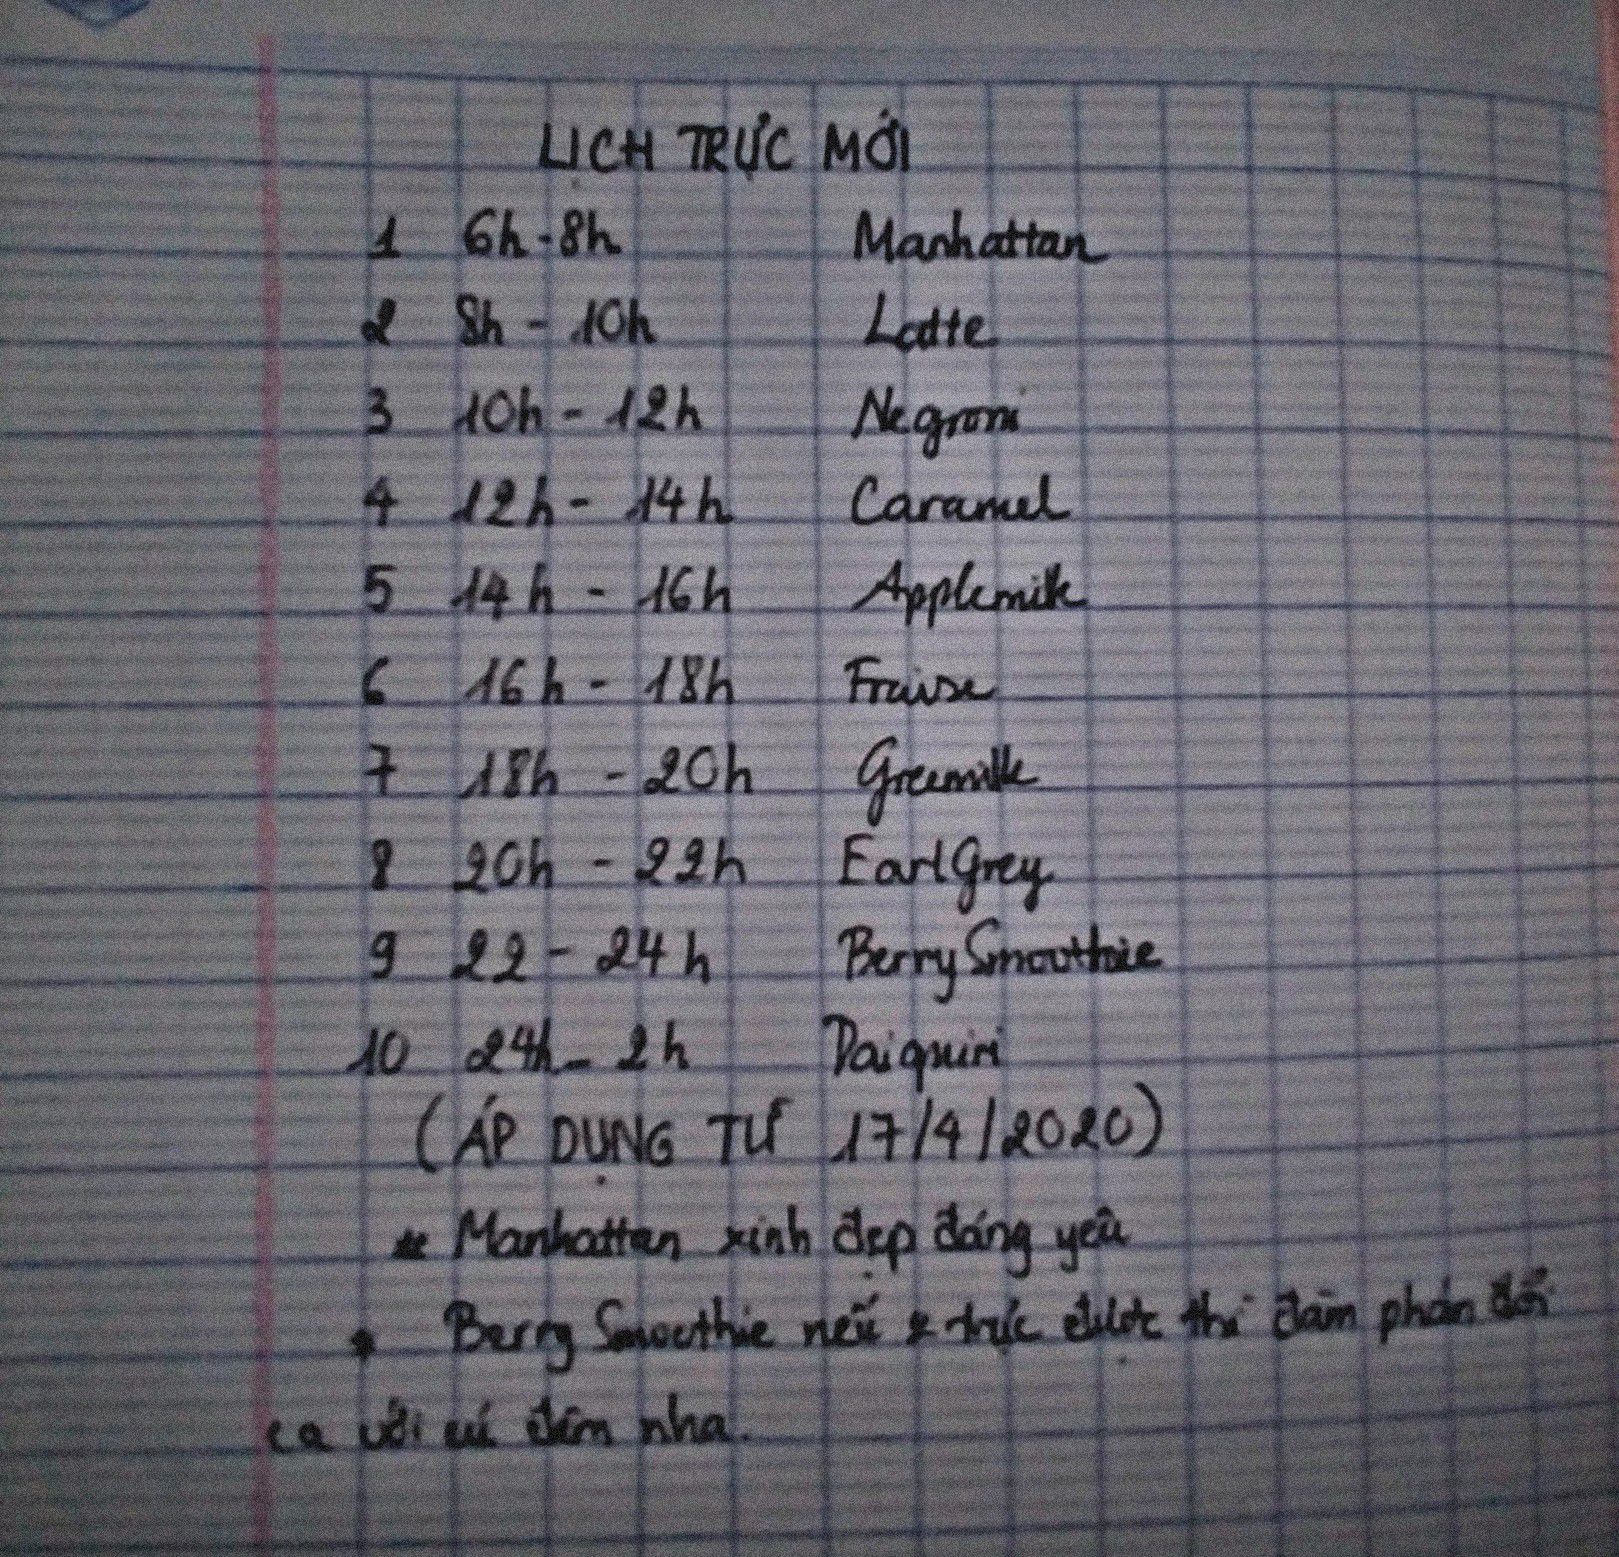 LỊCH TRỰC MỚI
1 6h-8h Manhattan
2 8h - 10h Latte
3 10h - 12h Negroni
4 12h - 14h Caramel
5 14h - 16h Applemilk
6 16h - 18h Fraise
7 18h - 20h Greemilk
8 20h - 22h EarlGrey
9 22 - 24h BerrySmoothie
10 24h - 2h Daiquiri
(ÁP DỤNG TỪ 17/4/2020)
* Manhattan xinh đẹp đáng yêu
* Berry Smoothie nếu trực được thì đàm phán đổi
ca với cú đêm nha.